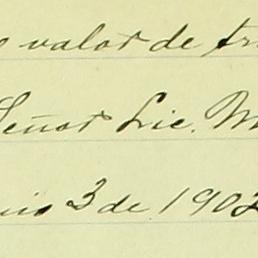 valor de
Señor Lic. M
3 de 1902